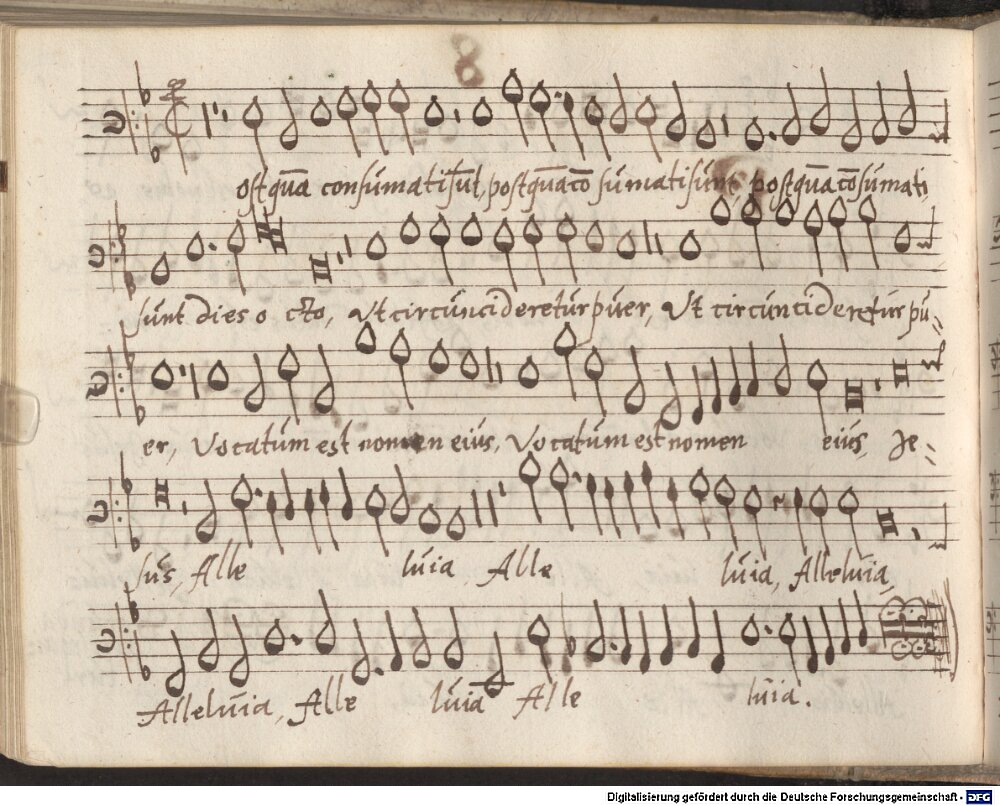 8
ostquā consumati sūt, postquā cō sumati sunt, postquā cōsumati
sunt dies o cto, Ut circuncideretur puer, Ut circuncideretur pu-
er, Vocatum est nomen eius, Vocatum est nomen eius, Je-
sus, Alle luia Alle luia, Alleluia,
Alleluia, Alle luia Alle luia.
Digitalisierung gefördert durch die Deutsche Forschungsgemeinschaft - DFG